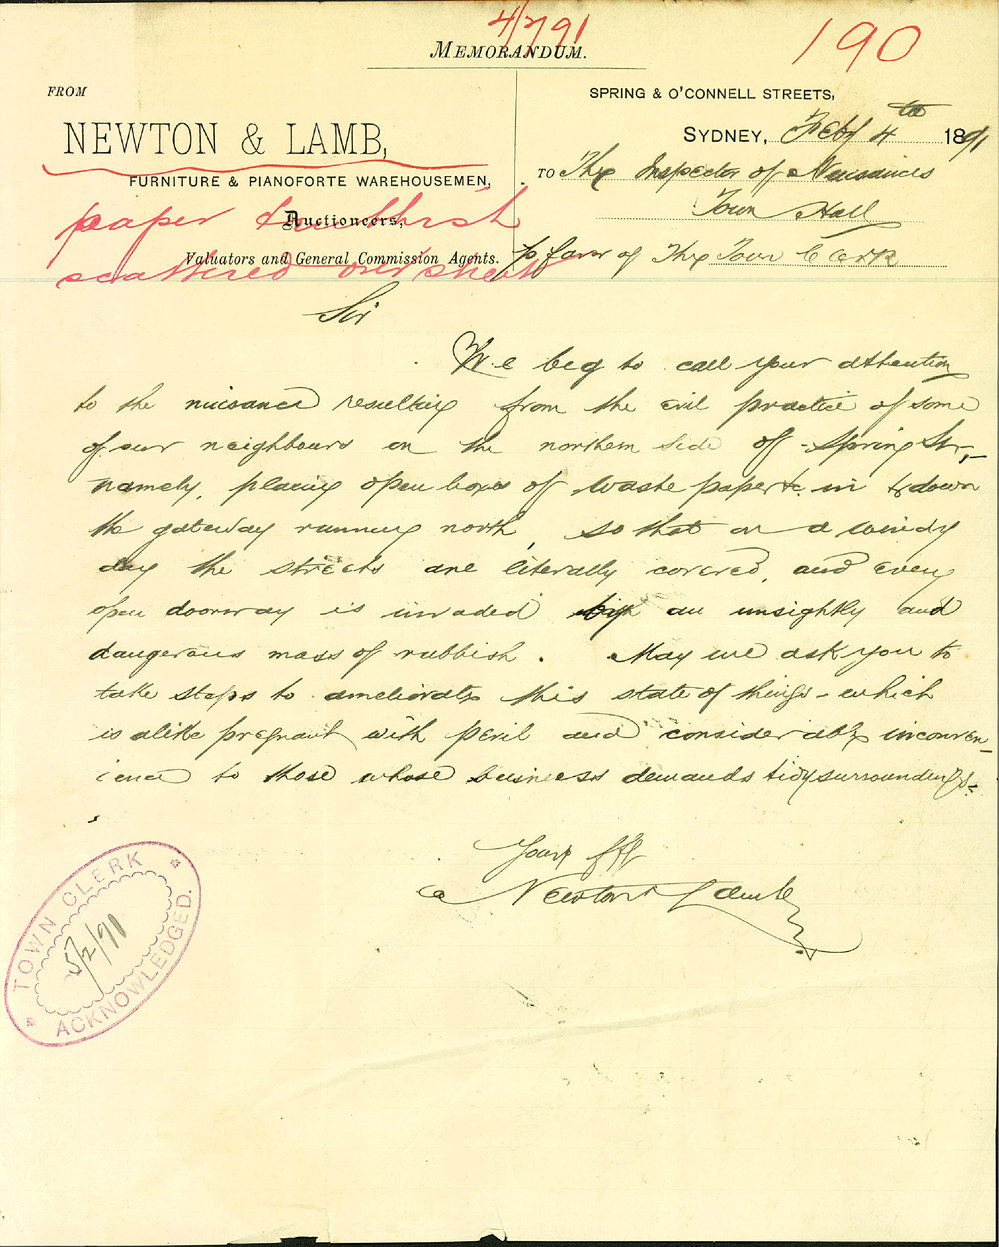 4/2/91
190
MEMORANDUM.
FROM
NEWTON & LAMB,
FURNITURE & PIANOFORTE WAREHOUSEMEN,
Auctioneers,
Valuators and General Commission Agents.
paper & dust
scattered over street
SPRING & O'CONNELL STREETS,
SYDNEY, Feby 4th 1891
TO The Inspector of Nuisances
Town Hall
p favor of The Town Clerk
Sir
We beg to call your attention
to the nuisance resulting from the evil practice of some
of our neighbours on the northern side of Spring St,-
namely, placing open boxes of waste paper &c in & down
the gateway running north, so that on a windy
day the streets are literally covered, and every
open doorway is invaded by an unsightly and
dangerous mass of rubbish. May we ask you to
take steps to ameliorate this state of things - which
is alike pregnant with peril and considerable inconven-
ience to those whose business demands tidy surroundings.
Yours ffy
Newton & Lamb
TOWN CLERK
5/2/91
ACKNOWLEDGED.